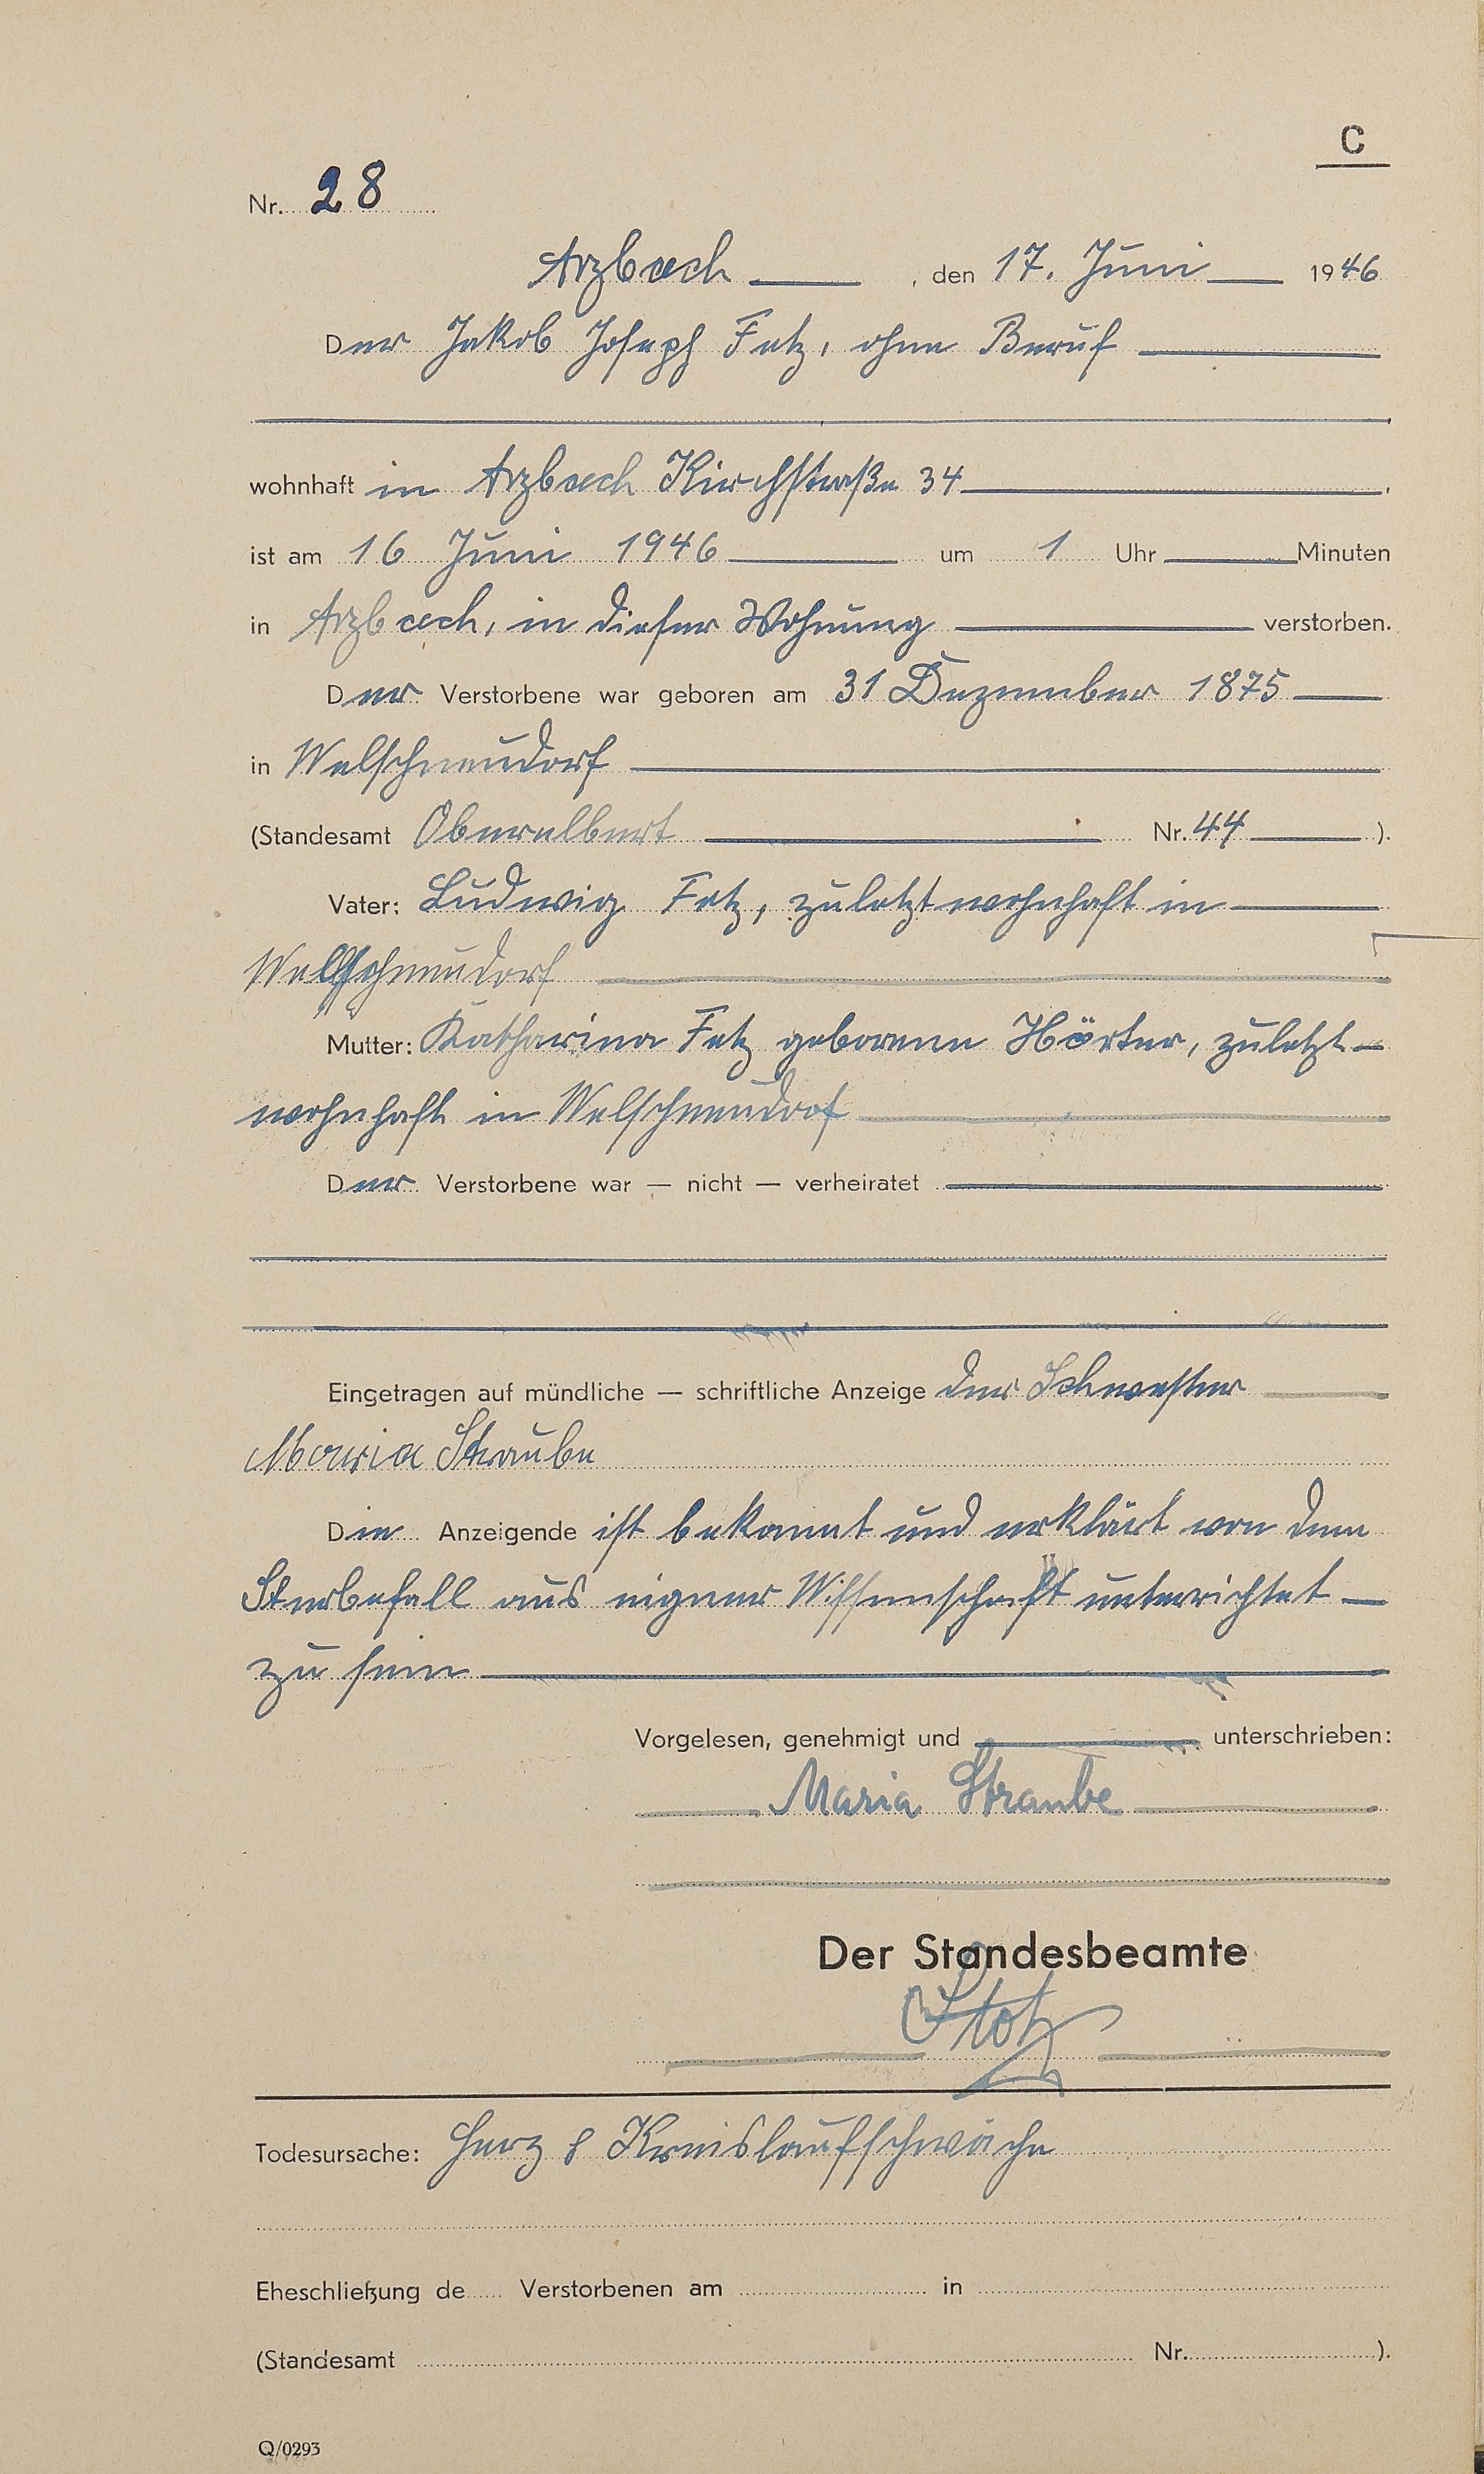 C
Nr. 28
Arzbach, den 17. Juni 1946
Der Jakob Joseph Fetz, ohne Beruf
wohnhaft in Arzbach Kirchstraße 34,
ist am 16 Juni 1946 um 1 Uhr Minuten
in Arzbach, in dieser Wohnung verstorben.
Der Verstorbene war geboren am 31 Dezember 1875
in Welschneudorf
(Standesamt Oberelbert Nr. 44).
Vater: Ludwig Fetz, zuletzt wohnhaft in
Welschneudorf
Mutter: Katharina Fetz geborene Hörter, zuletzt
wohnhaft in Welschneudorf
Der Verstorbene war — nicht — verheiratet
Eingetragen auf mündliche — schriftliche Anzeige der Schwester
Maria Straube
Die Anzeigende ist bekannt und erklärt von dem
Sterbefall aus eigener Wissenschaft unterrichtet
zu sein
Vorgelesen, genehmigt und unterschrieben:
Maria Straube
Der Standesbeamte
Stotz
Todesursache: Herz & Kreislaufschwäche
Eheschließung de Verstorbenen am in
(Standesamt Nr. ).
Q/0293